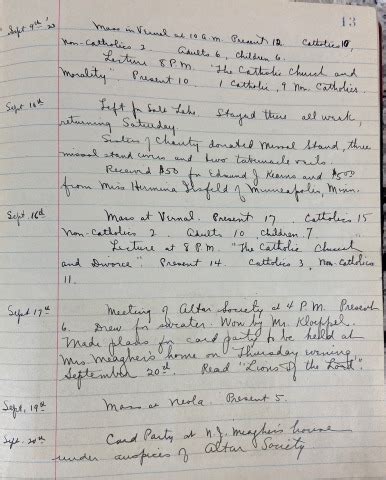 13
Sept 9th '23 Mass in Vernal at 10 A.M. Present 12 Catholics 10,
Non-Catholics 2 Adults 6, Children 6.
Lecture 8 P.M. "The Catholic Church and
Morality". Present 10. 1 Catholic, 9 Non Catholics.
Sept 10th Left for Salt Lake. Stayed there all week,
returning Saturday.
Sisters of Charity donated Missal Stand, three
missal stand covers and two tabernacle veils.
Received $50 from Edmund J Kearns and $500
from Miss Hermina of Minneapolis, Minn.
Sept. 16th Mass at Vernal. Present 17 Catholics 15
Non-Catholics 2. Adults 10 Children 7
Lecture at 8 P.M. "The Catholic Church
and Divorce". Present 14. Catholics 3, Non-Catholics
11.
Sept 17th Meeting of Altar Society at 4 P.M. Present
6. Drew for sweater. Won by Mr. Kloeppel.
Made plans for card party to be held at
Mrs Meagher's home on Thursday evening
September 20th. Read "Lions of the Lord".
Sept. 19th Mass at Neola. Present 5.
Sept. 20th Card Party at N.J. Meagher's house
under auspices of Altar Society